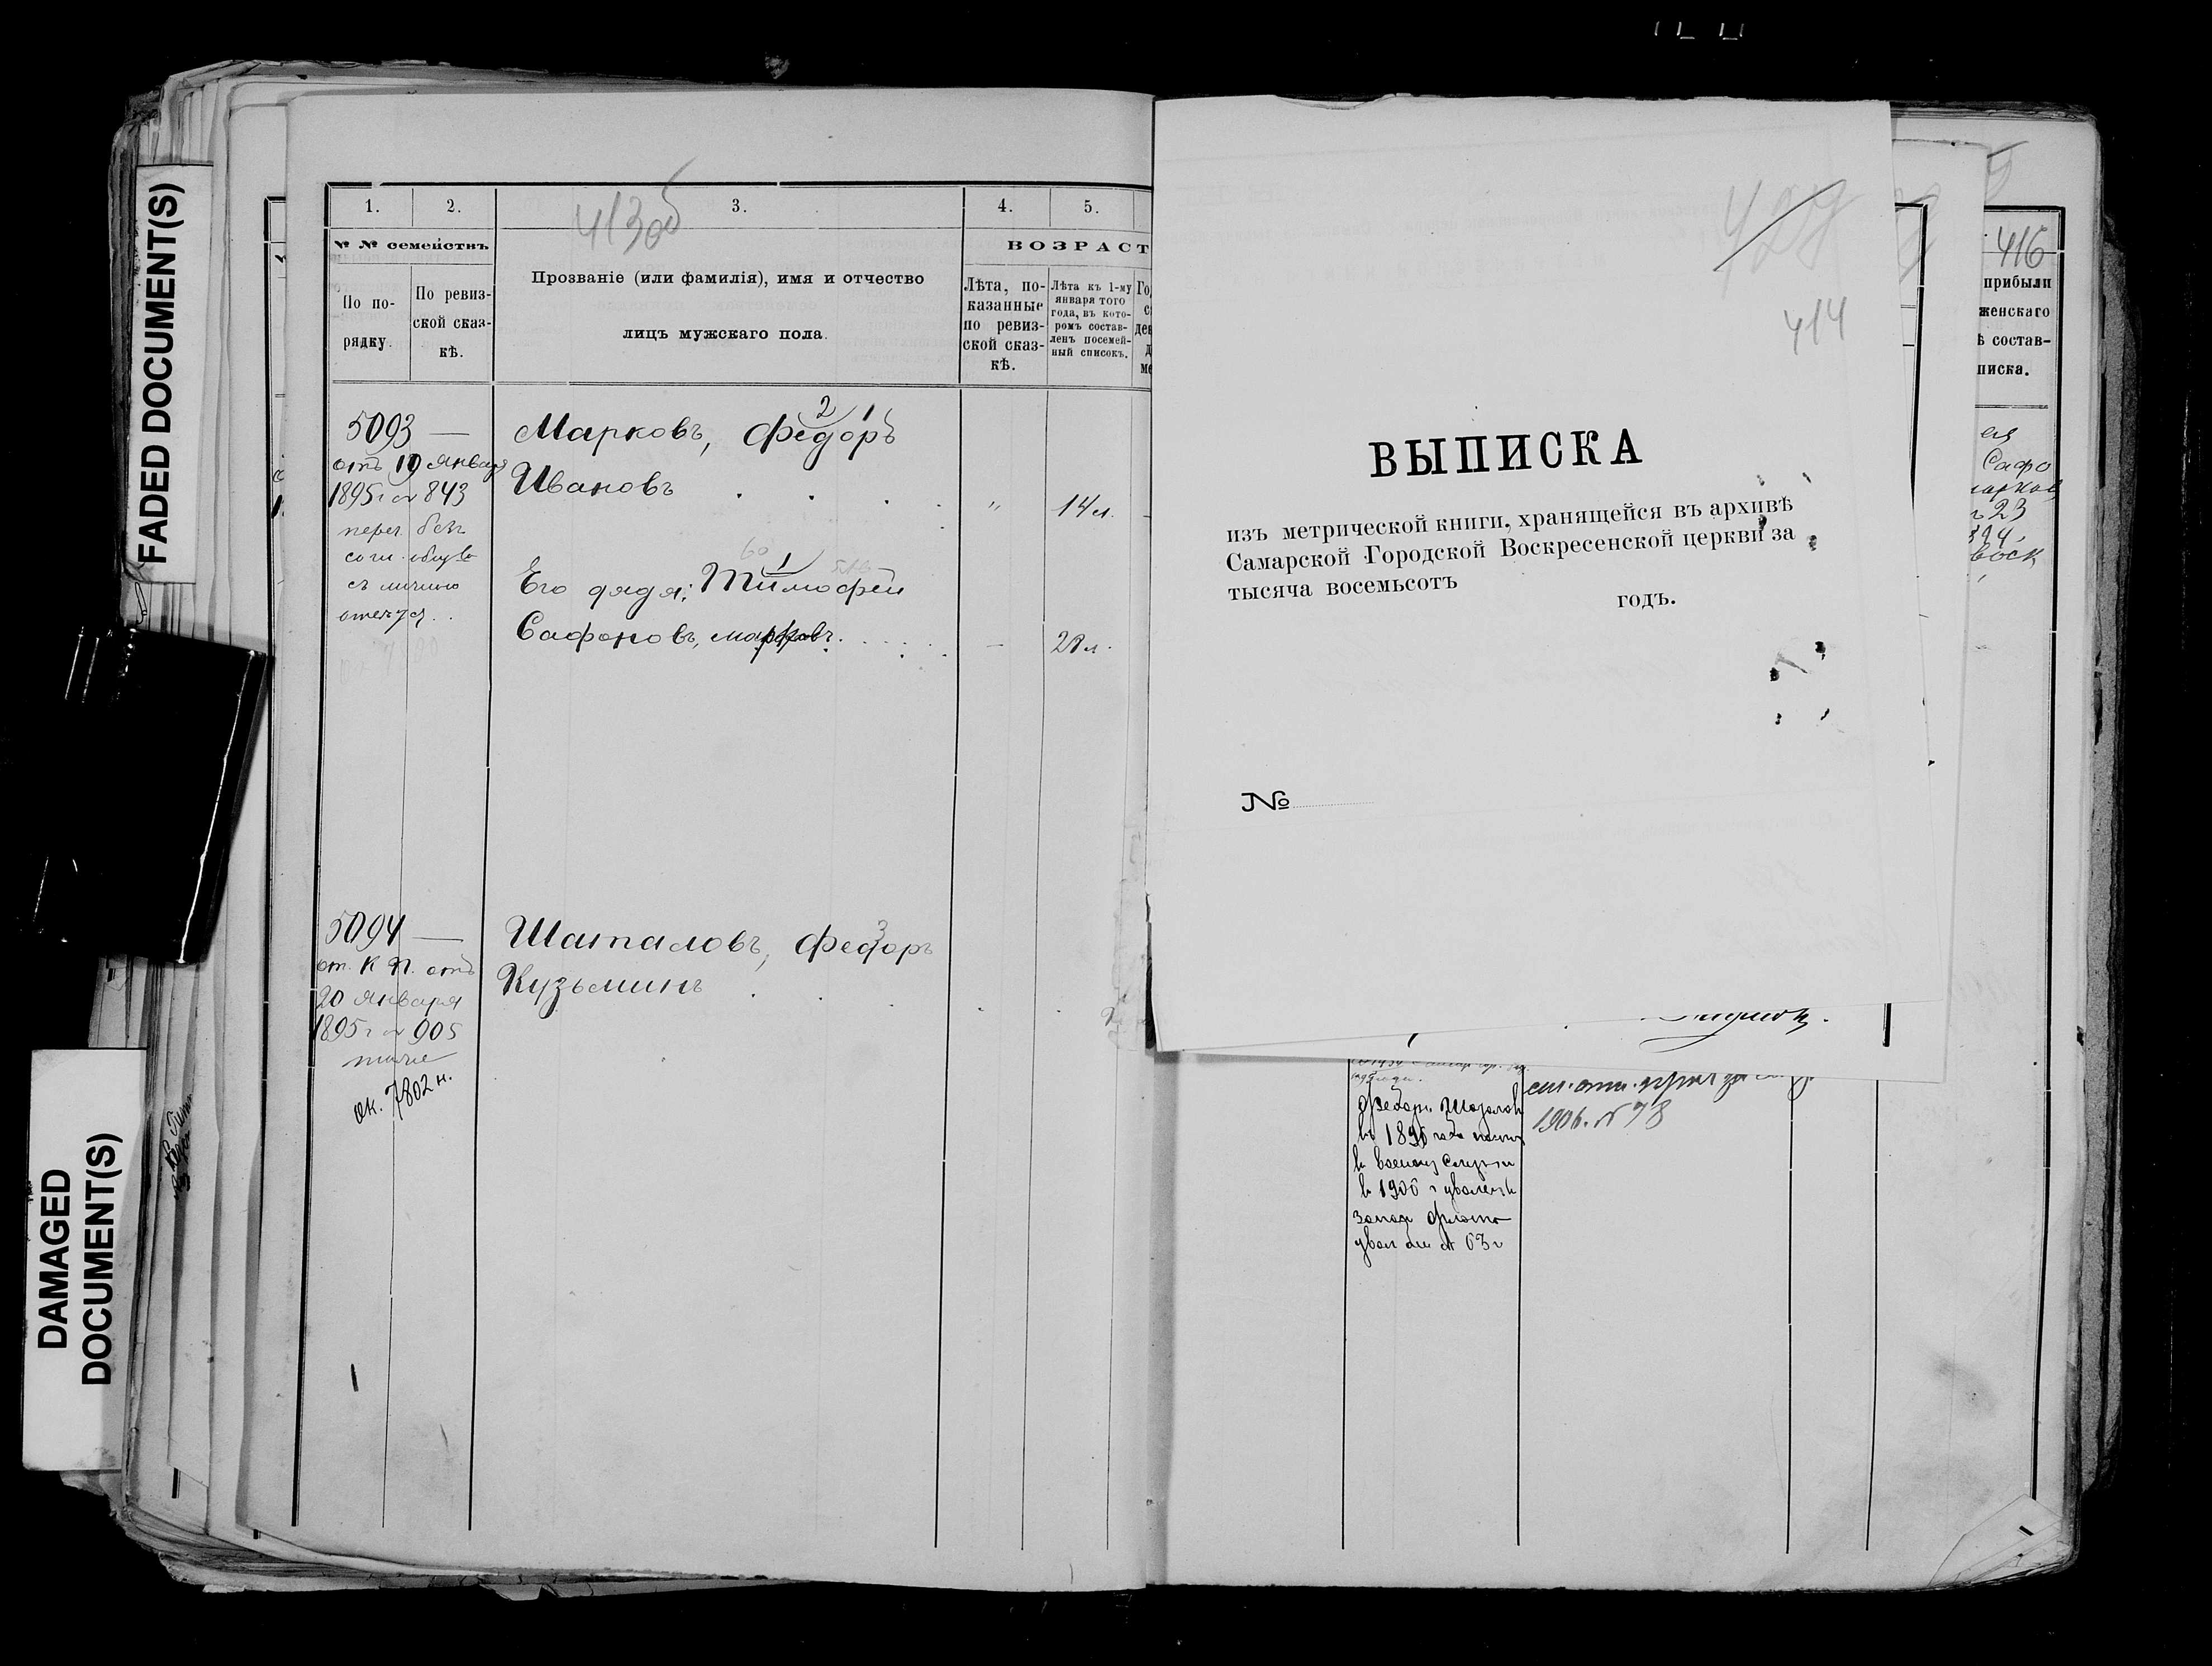 FADED DOCUMENT(S)
DAMAGED
DOCUMENT(S)
413 об
1. 2. 3. 4. 5.
№ № семействъ
По по-
рядку.
По ревиз-
ской сказ-
кѣ.
Прозваніе (или фамилія), имя и отчество
лицъ мужскаго пола.
ВОЗРАСТ
Лѣта, по-
казанные
по ревиз-
ской сказ-
кѣ.
Лѣта къ 1-му
января того
года, въ кото-
ромъ состав-
ленъ посемей-
ный списокъ.
5093 —
отъ 19 января
1895 г № 843
переч. без
согл. общва
съ личною
2 1
Марковъ, Федоръ
Ивановъ . . . " 14 л.
1
Его дядя: Тимофей
Сафоновъ, Марковъ. — 28 л.
5094 —
от. К П. отъ
20 января
1895 г № 905
тоже
ок. 7802 н.
3
Шаталовъ, Федоръ
Кузьминъ . . .
414
ВЫПИСКА
изъ метрической книги, хранящейся въ архивѣ
Самарской Городской Воскресенской церкви за
тысяча восемьсотъ
годъ.
№
416
прибыли
женскаго
ѣ состав-
писка.
ея
Сафо
23
Федоръ Шаталов
в 1896 года
в военную службу
в 1906 г уволен в
запас флота
1906. № 78